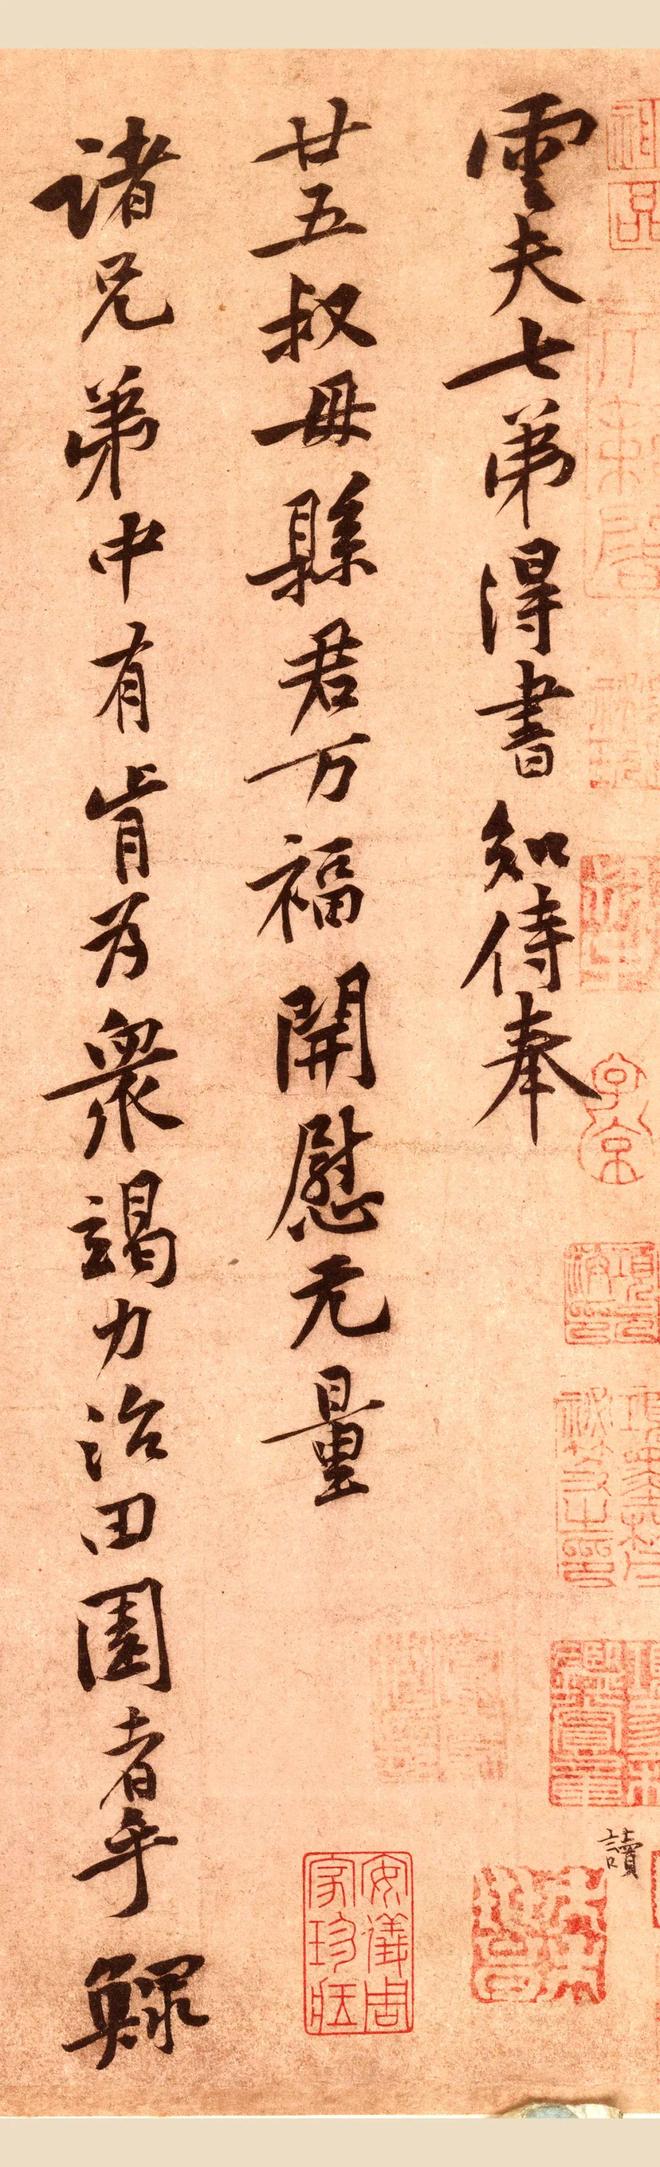 雲夫七弟得書知侍奉
廿五叔母縣君万福開慰无量
諸兄弟中有肯為衆竭力治田園者乎鰥
讀
子京
安儀周家珍藏